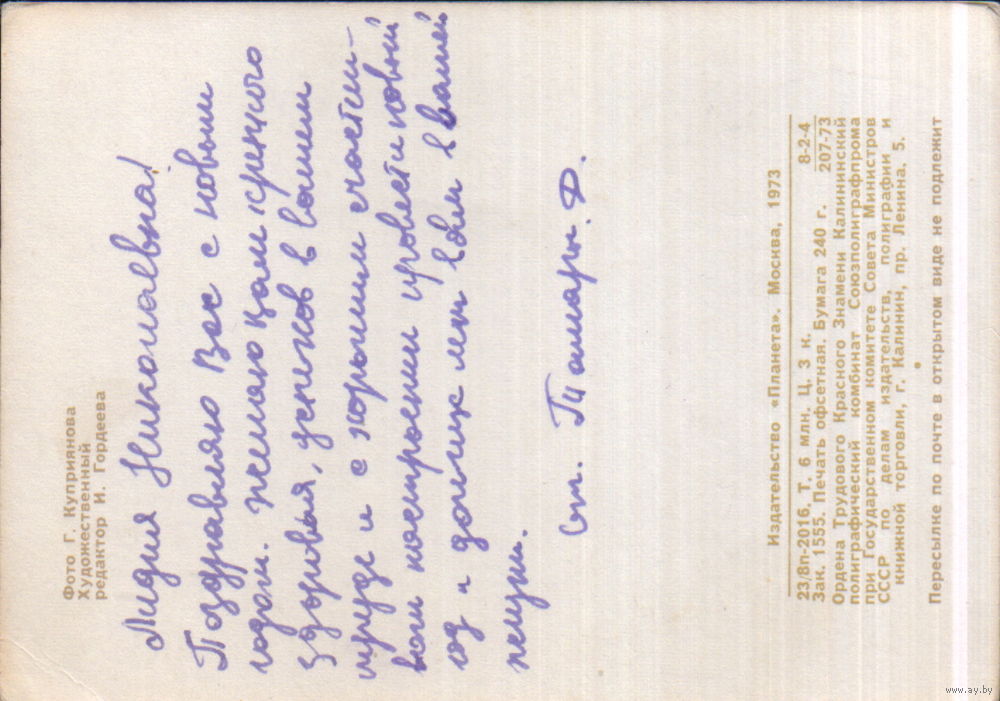 Фото Г. Куприянова
Художественный
редактор И. Гордеева
Лидия Николаевна!
Поздравляю Вас с новым
годом. желаю вам крепкого
здоровья, успехов в вашем
труде и с хорошим счастли-
вым настроении провести новый
год и долгих лет вам в вашей
жизни.
ст. Тамары. Ф.
Издательство «Планета». Москва, 1973
23/8п-2016. Т. 6 млн. Ц. 3 к. 8-2-4
Зак. 1555. Печать офсетная. Бумага 240 г. 207-73
Ордена Трудового Красного Знамени Калининский
полиграфический комбинат Союзполиграфпрома
при Государственном комитете Совета Министров
СССР по делам издательств, полиграфии и
книжной торговли, г. Калинин, пр. Ленина, 5.
Пересылке по почте в открытом виде не подлежит
www.ay.by